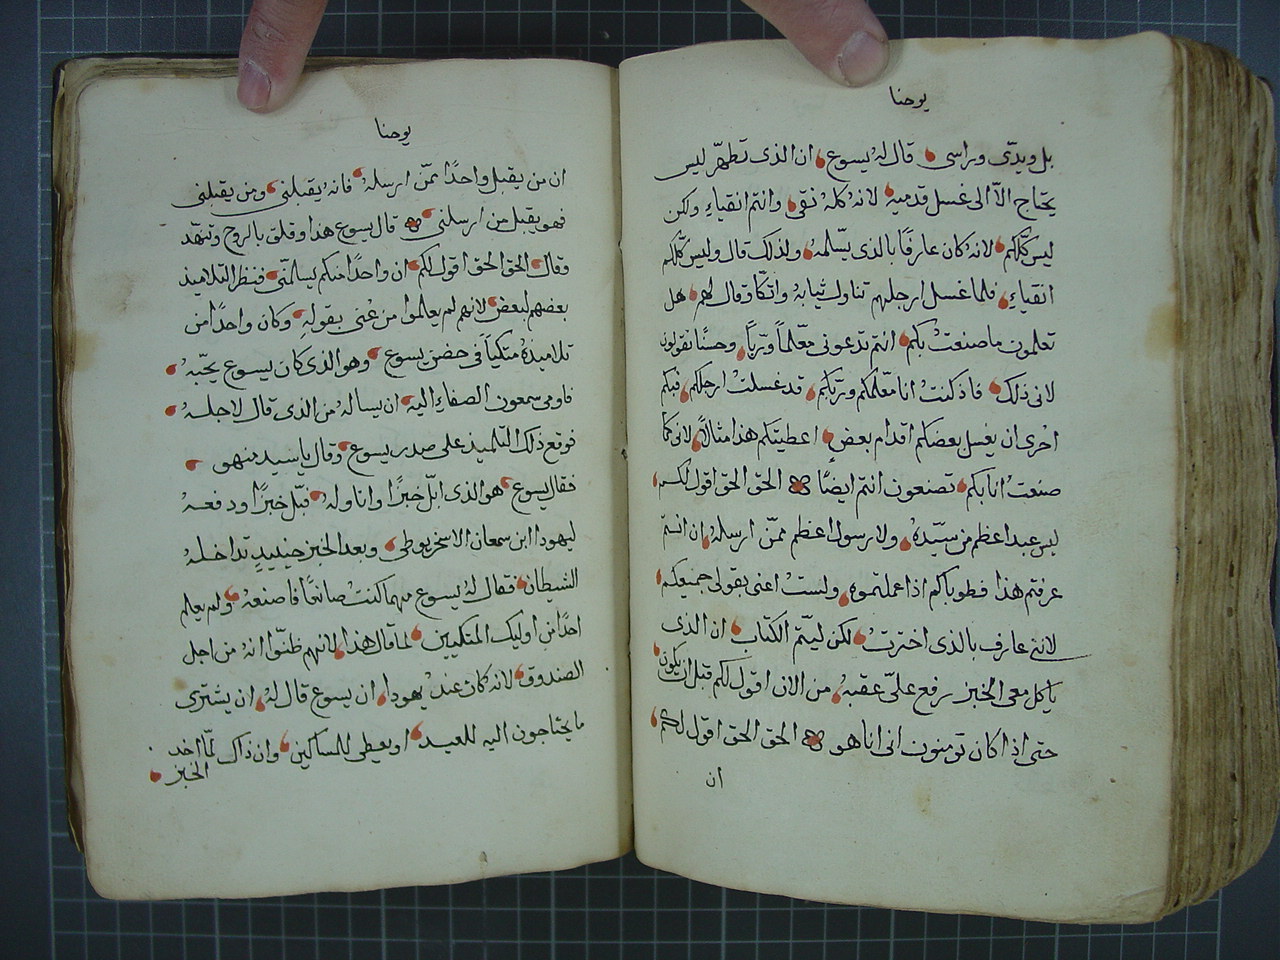 يوحنا
بل ويديّ وراسي قال له يسوع ان الذي تطهّر ليس
يحتاج الاّ الى غسل قدميه لانه كله نقي وانتم انقياء ولكن
ليس كلّكم لانه كان عارفًا بالذي يسّلمه ولذلك قال وليس كلّكم
انقياء فلما غسل ارجلهم تناول ثيابه واتكّا وقال لهم هل
تعلمون ما صنعت بكم انتم تدعوني معّلماً وربّاً وحسنًا تقولون
لاني ذلك فاذ كنت انا معّلمكم وربّكم قد غسلت ارجلكم فبكم
احرى ان يغسل بعضكم اقدام بعض اعطيتكم هذا مثالاً لاني كما
صنعت انا بكم تصنعون انتم ايضًا الحق الحق اقول لكم
ليس عبد اعظم من سيّده ولا رسول اعظم ممّن ارسله ان انتم
عرفتم هذا فطوباكم اذا عملتموه ولست اعني بقولي جميعكم
لانني عارف بالذي اخترت لكن ليتّم الكتاب ان الذي
ياكل معي الخبز رفع عليّ عقبه من الان اقول لكم قبل ان يكون
حتى اذا كان تومنون اني انا هو الحق الحق اقول لكم
ان
يوحنا
ان من يقبل واحدًا ممّن ارسله فانه يقبلني ومن يقبلني
فهو يقبل من ارسلني قال يسوع هذا وقلق بالروح وتنهّد
وقال الحق الحق اقول لكم ان واحدًا منكم يسلمّني فنظر التلاميذ
بعضهم لبعض لانهم لم يعلموا من عنى بقوله وكان واحدًا من
تلاميذه متكياً في حضن يسوع وهو الذي كان يسوع يحّبه
فاومى سمعون الصفاء اليه ان يساله من الذي قال لاجله
فوقع ذلك التلميذ على صدر يسوع وقال يا سيد من هو
فقال يسوع هو الذي ابلّ خبزًا واناوله فبّل خبزًا ودفعه
ليهودا ابن سمعان الاسخريوطي وبعد الخبز حينيذٍ تداخله
الشيطان فقال له يسوع مهما كنت صانعًا فاصنعه ولم يعلم
احدًا من اوليك المتكيين لما قال هذا لانهم ظنّوا انه من اجل
الصندوق لانه كان عند يهودا ان يسوع قال له ان يشتري
ما يحتاجون اليه للعيد او يعطي للمساكين وان ذاك لمّا اخد
الخبز